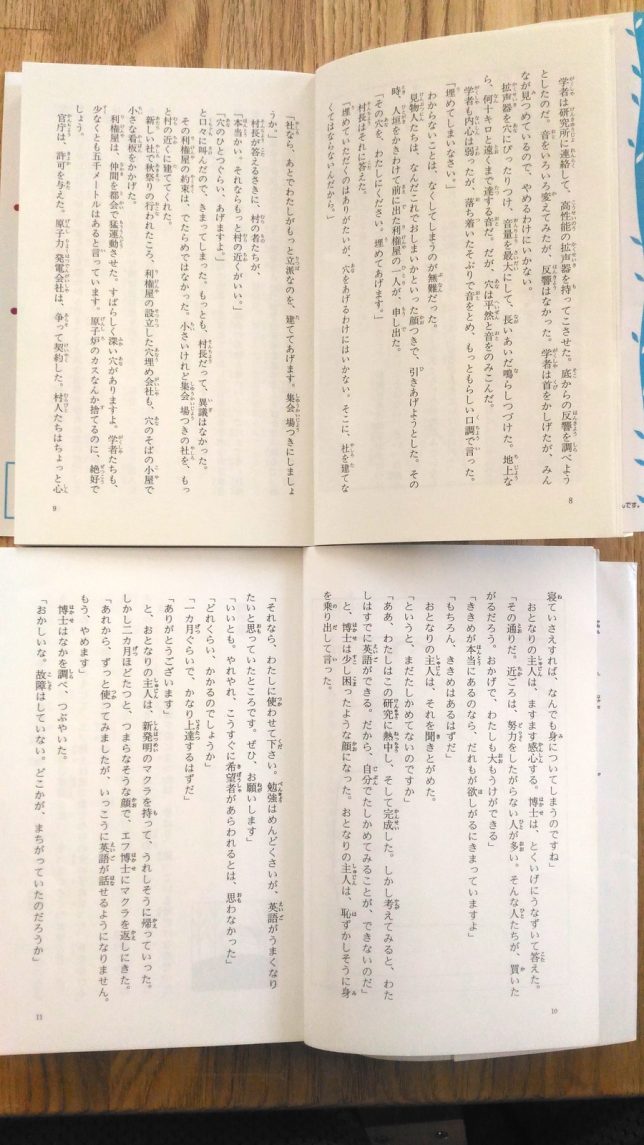 学者は研究所に連絡して、高性能の拡声器を持ってこさせた。底からの反響を調べよう
としたのだ。音をいろいろ変えてみたが、反響はなかった。学者は首をかしげたが、みん
なが見つめているので、やめるわけにいかない。
拡声器を穴にぴったりつけ、音量を最大にして、長いあいだ鳴らしつづけた。地上な
ら、何十キロと遠くまで達する音だ。だが、穴は平然と音をのみこんだ。
学者も内心は弱ったが、落ち着いたそぶりで音をとめ、もっともらしい口調で言った。
「埋めてしまいなさい。」
わからないことは、なくしてしまうのが無難だった。
見物人たちは、なんだこれでおしまいかといった顔つきで、引きあげようとした。その
時、人垣をかきわけて前に出た利権屋の一人が、申し出た。
「その穴を、わたしにください。埋めてあげます。」
村長はそれに答えた。
「埋めていただくのはありがたいが、穴をあげるわけにはいかない。そこに、社を建てな
くてはならないんだから。」
8
「社なら、あとでわたしがもっと立派なのを、建ててあげます。集会場つきにしましょ
うか。」
村長が答えるさきに、村の者たちが、
「本当かい。それならもっと村の近くがいい。」
「穴のひとつぐらい、あげますよ。」
と口々に叫んだので、きまってしまった。もっとも、村長だって、異議はなかった。
その利権屋の約束は、でたらめではなかった。小さいけれど集会場つきの社を、もっ
と村の近くに建ててくれた。
新しい社で秋祭りの行われたころ、利権屋の設立した穴埋め会社も、穴のそばの小屋で
小さな看板をかかげた。
利権屋は、仲間を都会で猛運動させた。すばらしく深い穴がありますよ。学者たちも、
少なくとも五千メートルはあると言っています。原子炉のカスなんか捨てるのに、絶好で
しょう。
官庁は、許可を与えた。原子力発電会社は、争って契約した。村人たちはちょっと心
9
んです。
寝ていさえすれば、なんでも身についてしまうのですね」
おとなりの主人は、ますます感心する。博士は、とくいげにうなずいて答えた。
「その通りだ。近ごろは、努力をしたがらない人が多い。そんな人たちが、買いた
がるだろう。おかげで、わたしも大もうけができる」
「ききめが本当にあるのなら、だれもが欲しがるにきまっていますよ」
「もちろん、ききめはあるはずだ」
おとなりの主人は、それを聞きとがめた。
「というと、まだたしかめてないのですか」
「ああ、わたしはこの研究に熱中し、そして完成した。しかし考えてみると、わた
しはすでに英語ができる。だから、自分でたしかめてみることが、できないのだ」
と、博士は少し困ったような顔になった。おとなりの主人は、恥ずかしそうに身
を乗り出して言った。
10
「それなら、わたしに使わせて下さい。勉強はめんどくさいが、英語がうまくなり
たいと思っていたところです。ぜひ、お願いします」
「いいとも。やれやれ、こうすぐに希望者があらわれるとは、思わなかった」
「どれくらい、かかるのでしょうか」
「一カ月ぐらいで、かなり上達するはずだ」
「ありがとうございます」
と、おとなりの主人は、新発明のマクラを持って、うれしそうに帰っていった。
しかし二カ月ほどたつと、つまらなそうな顔で、エフ博士にマクラを返しにきた。
「あれから、ずっと使ってみましたが、いっこうに英語が話せるようになりません。
もう、やめます」
博士はなかを調べ、つぶやいた。
「おかしいな。故障はしていない。どこかが、まちがっていたのだろうか」
11